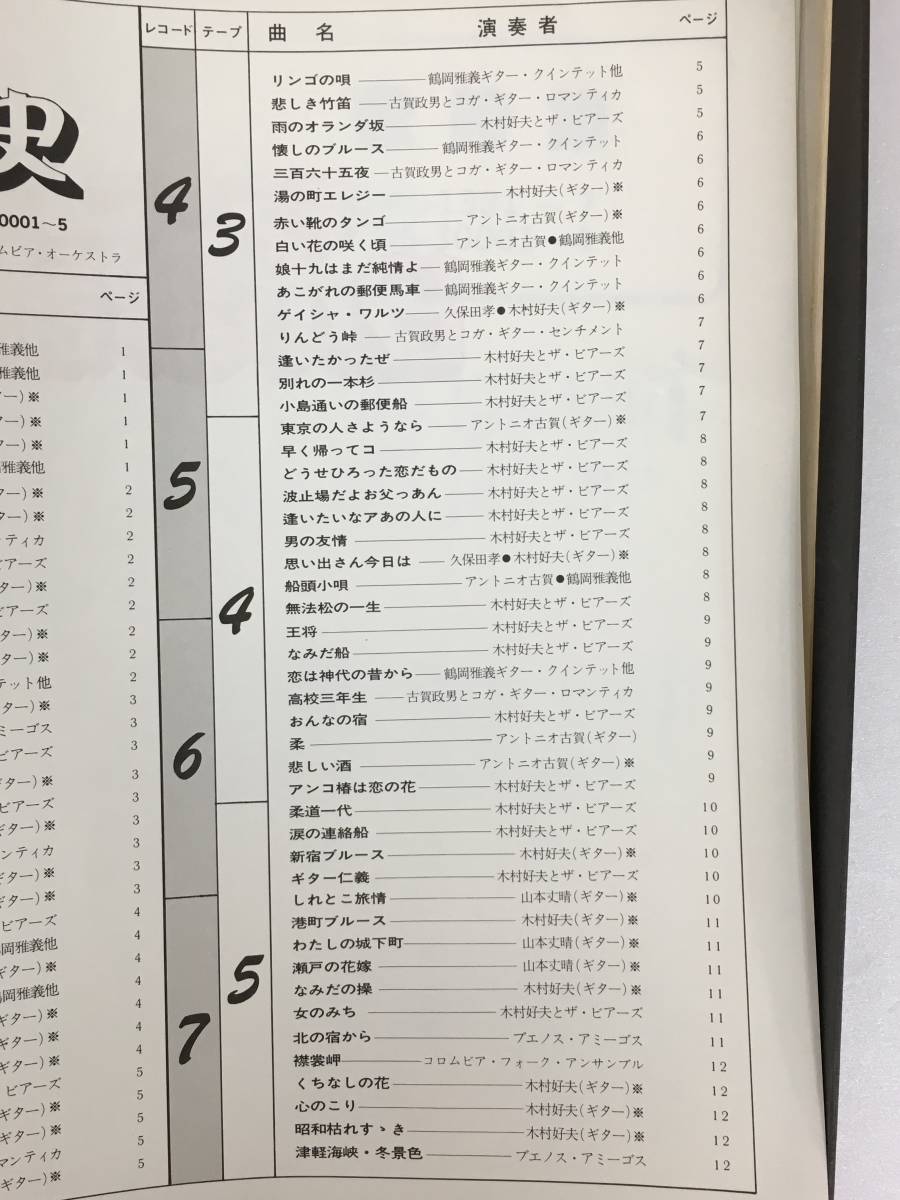 史
0001〜5
ムビア・オーケストラ
ページ
雅義他 1
雅義他 1
ー)※ 1
ター)※ 1
ター)※ 1
雅義他 1
ター)※ 2
ター)※ 2
ティカ 2
ビアーズ 2
ター)※ 2
ビアーズ 2
ター)※ 2
ター)※ 2
テット他 2
ター)※ 3
ミーゴス 3
ビアーズ 3
ギター)※ 3
ビアーズ 3
ギター)※ 3
ンティカ 3
ギター)※ 3
ギター)※ 3
ビアーズ 4
鶴岡雅義他 4
ギター)※ 4
鶴岡雅義他 4
ギター)※ 4
ギター)※ 4
ギター)※ 4
ビアーズ 5
ギター)※ 5
ギター)※ 5
マンティカ 5
ギター)※ 5
レコード テープ 曲名 演奏者 ページ
4
5
6
7
3
4
5
リンゴの唄 鶴岡雅義ギター・クインテット他 5
悲しき竹笛 古賀政男とコガ・ギター・ロマンティカ 5
雨のオランダ坂 木村好夫とザ・ビアーズ 5
懐しのブルース 鶴岡雅義ギター・クインテット 6
三百六十五夜 古賀政男とコガ・ギター・ロマンティカ 6
湯の町エレジー 木村好夫(ギター)※ 6
赤い靴のタンゴ アントニオ古賀(ギター)※ 6
白い花の咲く頃 アントニオ古賀●鶴岡雅義他 6
娘十九はまだ純情よ 鶴岡雅義ギター・クインテット 6
あこがれの郵便馬車 鶴岡雅義ギター・クインテット 6
ゲイシャ・ワルツ 久保田孝●木村好夫(ギター)※ 6
りんどう峠 古賀政男とコガ・ギター・センチメント 7
逢いたかったぜ 木村好夫とザ・ビアーズ 7
別れの一本杉 木村好夫とザ・ビアーズ 7
小島通いの郵便船 木村好夫とザ・ビアーズ 7
東京の人さようなら アントニオ古賀(ギター)※ 7
早く帰ってコ 木村好夫とザ・ビアーズ 8
どうせひろった恋だもの 木村好夫とザ・ビアーズ 8
波止場だよお父っあん 木村好夫とザ・ビアーズ 8
逢いたいなアあの人に 木村好夫とザ・ビアーズ 8
男の友情 木村好夫とザ・ビアーズ 8
思い出さん今日は 久保田孝●木村好夫(ギター)※ 8
船頭小唄 アントニオ古賀●鶴岡雅義他 8
無法松の一生 木村好夫とザ・ビアーズ 8
王将 木村好夫とザ・ビアーズ 9
なみだ船 木村好夫とザ・ビアーズ 9
恋は神代の昔から 鶴岡雅義ギター・クインテット他 9
高校三年生 古賀政男とコガ・ギター・ロマンティカ 9
おんなの宿 木村好夫とザ・ビアーズ 9
柔 アントニオ古賀(ギター) 9
悲しい酒 アントニオ古賀(ギター)※ 9
アンコ椿は恋の花 木村好夫とザ・ビアーズ 9
柔道一代 木村好夫とザ・ビアーズ 10
涙の連絡船 木村好夫とザ・ビアーズ 10
新宿ブルース 木村好夫(ギター)※ 10
ギター仁義 木村好夫とザ・ビアーズ 10
しれとこ旅情 山本丈晴(ギター)※ 10
港町ブルース 木村好夫(ギター)※ 11
わたしの城下町 山本丈晴(ギター)※ 11
瀬戸の花嫁 山本丈晴(ギター)※ 11
なみだの操 木村好夫(ギター)※ 11
女のみち 木村好夫とザ・ビアーズ 11
北の宿から ブエノス・アミーゴス 11
襟裳岬 コロムビア・フォーク・アンサンブル 12
くちなしの花 木村好夫(ギター)※ 12
心のこり 木村好夫(ギター)※ 12
昭和枯れすゝき 木村好夫(ギター)※ 12
津軽海峡・冬景色 ブエノス・アミーゴス 12